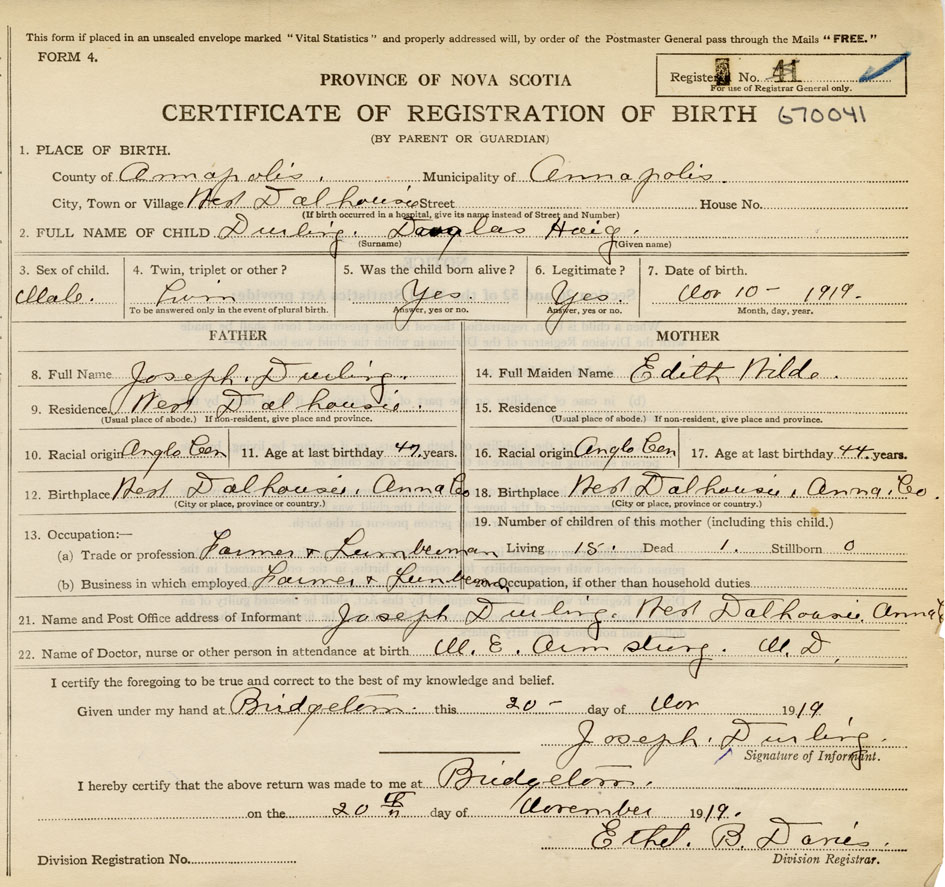 This form if placed in an unsealed envelope marked "Vital Statistics" and properly addressed will, by order of the Postmaster General pass through the Mails "FREE."
FORM 4.
Registered No. 41
For use of Registrar General only.
PROVINCE OF NOVA SCOTIA
CERTIFICATE OF REGISTRATION OF BIRTH 670041
(BY PARENT OR GUARDIAN)
1. PLACE OF BIRTH.
County of Annapolis. Municipality of Annapolis.
City, Town or Village West Dalhousie Street House No.
(If birth occurred in a hospital, give its name instead of Street and Number)
2. FULL NAME OF CHILD Durling. Douglas Haig.
(Surname) (Given name)
3. Sex of child. 4. Twin, triplet or other? 5. Was the child born alive? 6. Legitimate? 7. Date of birth.
Male. Twin Yes. Yes. Nov 10 - 1919.
To be answered only in the event of plural birth. Answer, yes or no. Answer, yes or no. Month, day, year.
FATHER MOTHER
8. Full Name Joseph. Durling. 14. Full Maiden Name Edith Wilds.
9. Residence. West Dalhousie. 15. Residence
(Usual place of abode.) If non-resident, give place and province. (Usual place of abode.) If non-resident, give place and province.
10. Racial origin Anglo Cen 11. Age at last birthday 47. years. 16. Racial origin Anglo Cen 17. Age at last birthday 44. years.
12. Birthplace West Dalhousie. Anna Co 18. Birthplace West Dalhousie. Anna. Co.
(City or place, province or country.) (City or place, province or country.)
19. Number of children of this mother (including this child.)
13. Occupation:—
(a) Trade or profession Farmer & Lumberman Living 15. Dead 1. Stillborn 0
(b) Business in which employed Farmer & Lumberman 20. Occupation, if other than household duties
21. Name and Post Office address of Informant Joseph Durling. West Dalhousie. Anna
22. Name of Doctor, nurse or other person in attendance at birth M. E. Armstrong. M. D.
I certify the foregoing to be true and correct to the best of my knowledge and belief.
Given under my hand at Bridgetown. this 20 - day of Nov 1919
Joseph. Durling.
Signature of Informant.
I hereby certify that the above return was made to me at Bridgetown.
on the 20th day of November 1919.
Ethel. B. Davies.
Division Registration No. Division Registrar.